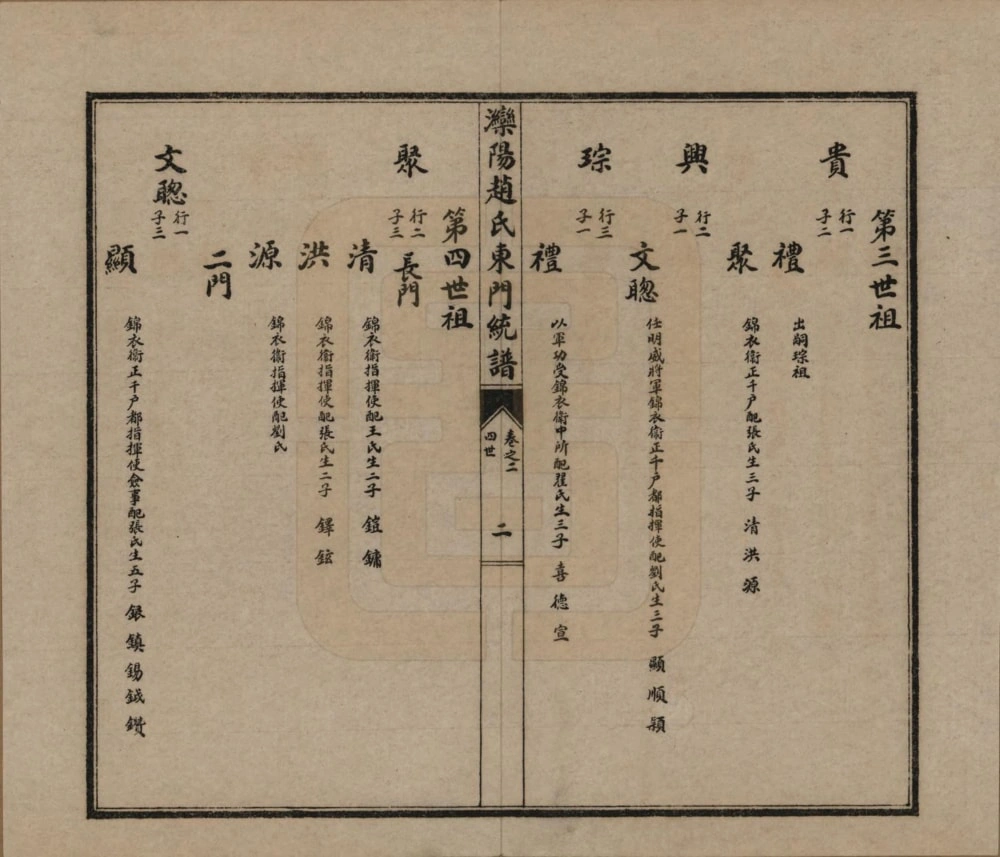 第三世祖
貴 行一 子二
禮 出嗣琮祖
聚 錦衣衛正千戶配張氏生三子 清 洪 源
興 行二 子一
文聰 任明威將軍錦衣衛正千戶都指揮使配劉氏生三子 顯 順 頴
琮 行三 子一
禮 以軍功受錦衣衛中所配翟氏生三子 喜 德 宣
灤陽趙氏東門統譜
卷之二
四世
二
第四世祖
聚 行二 子三 長門
清 錦衣衛指揮使配王氏生二子 鎧 鏞
洪 錦衣衛指揮使配張氏生二子 鐸 鉉
源 錦衣衛指揮使配劉氏
二門
文聰 行一 子三
顯 錦衣衛正千戶都指揮使僉事配張氏生五子 銀 鎮 錫 鉞 鑽